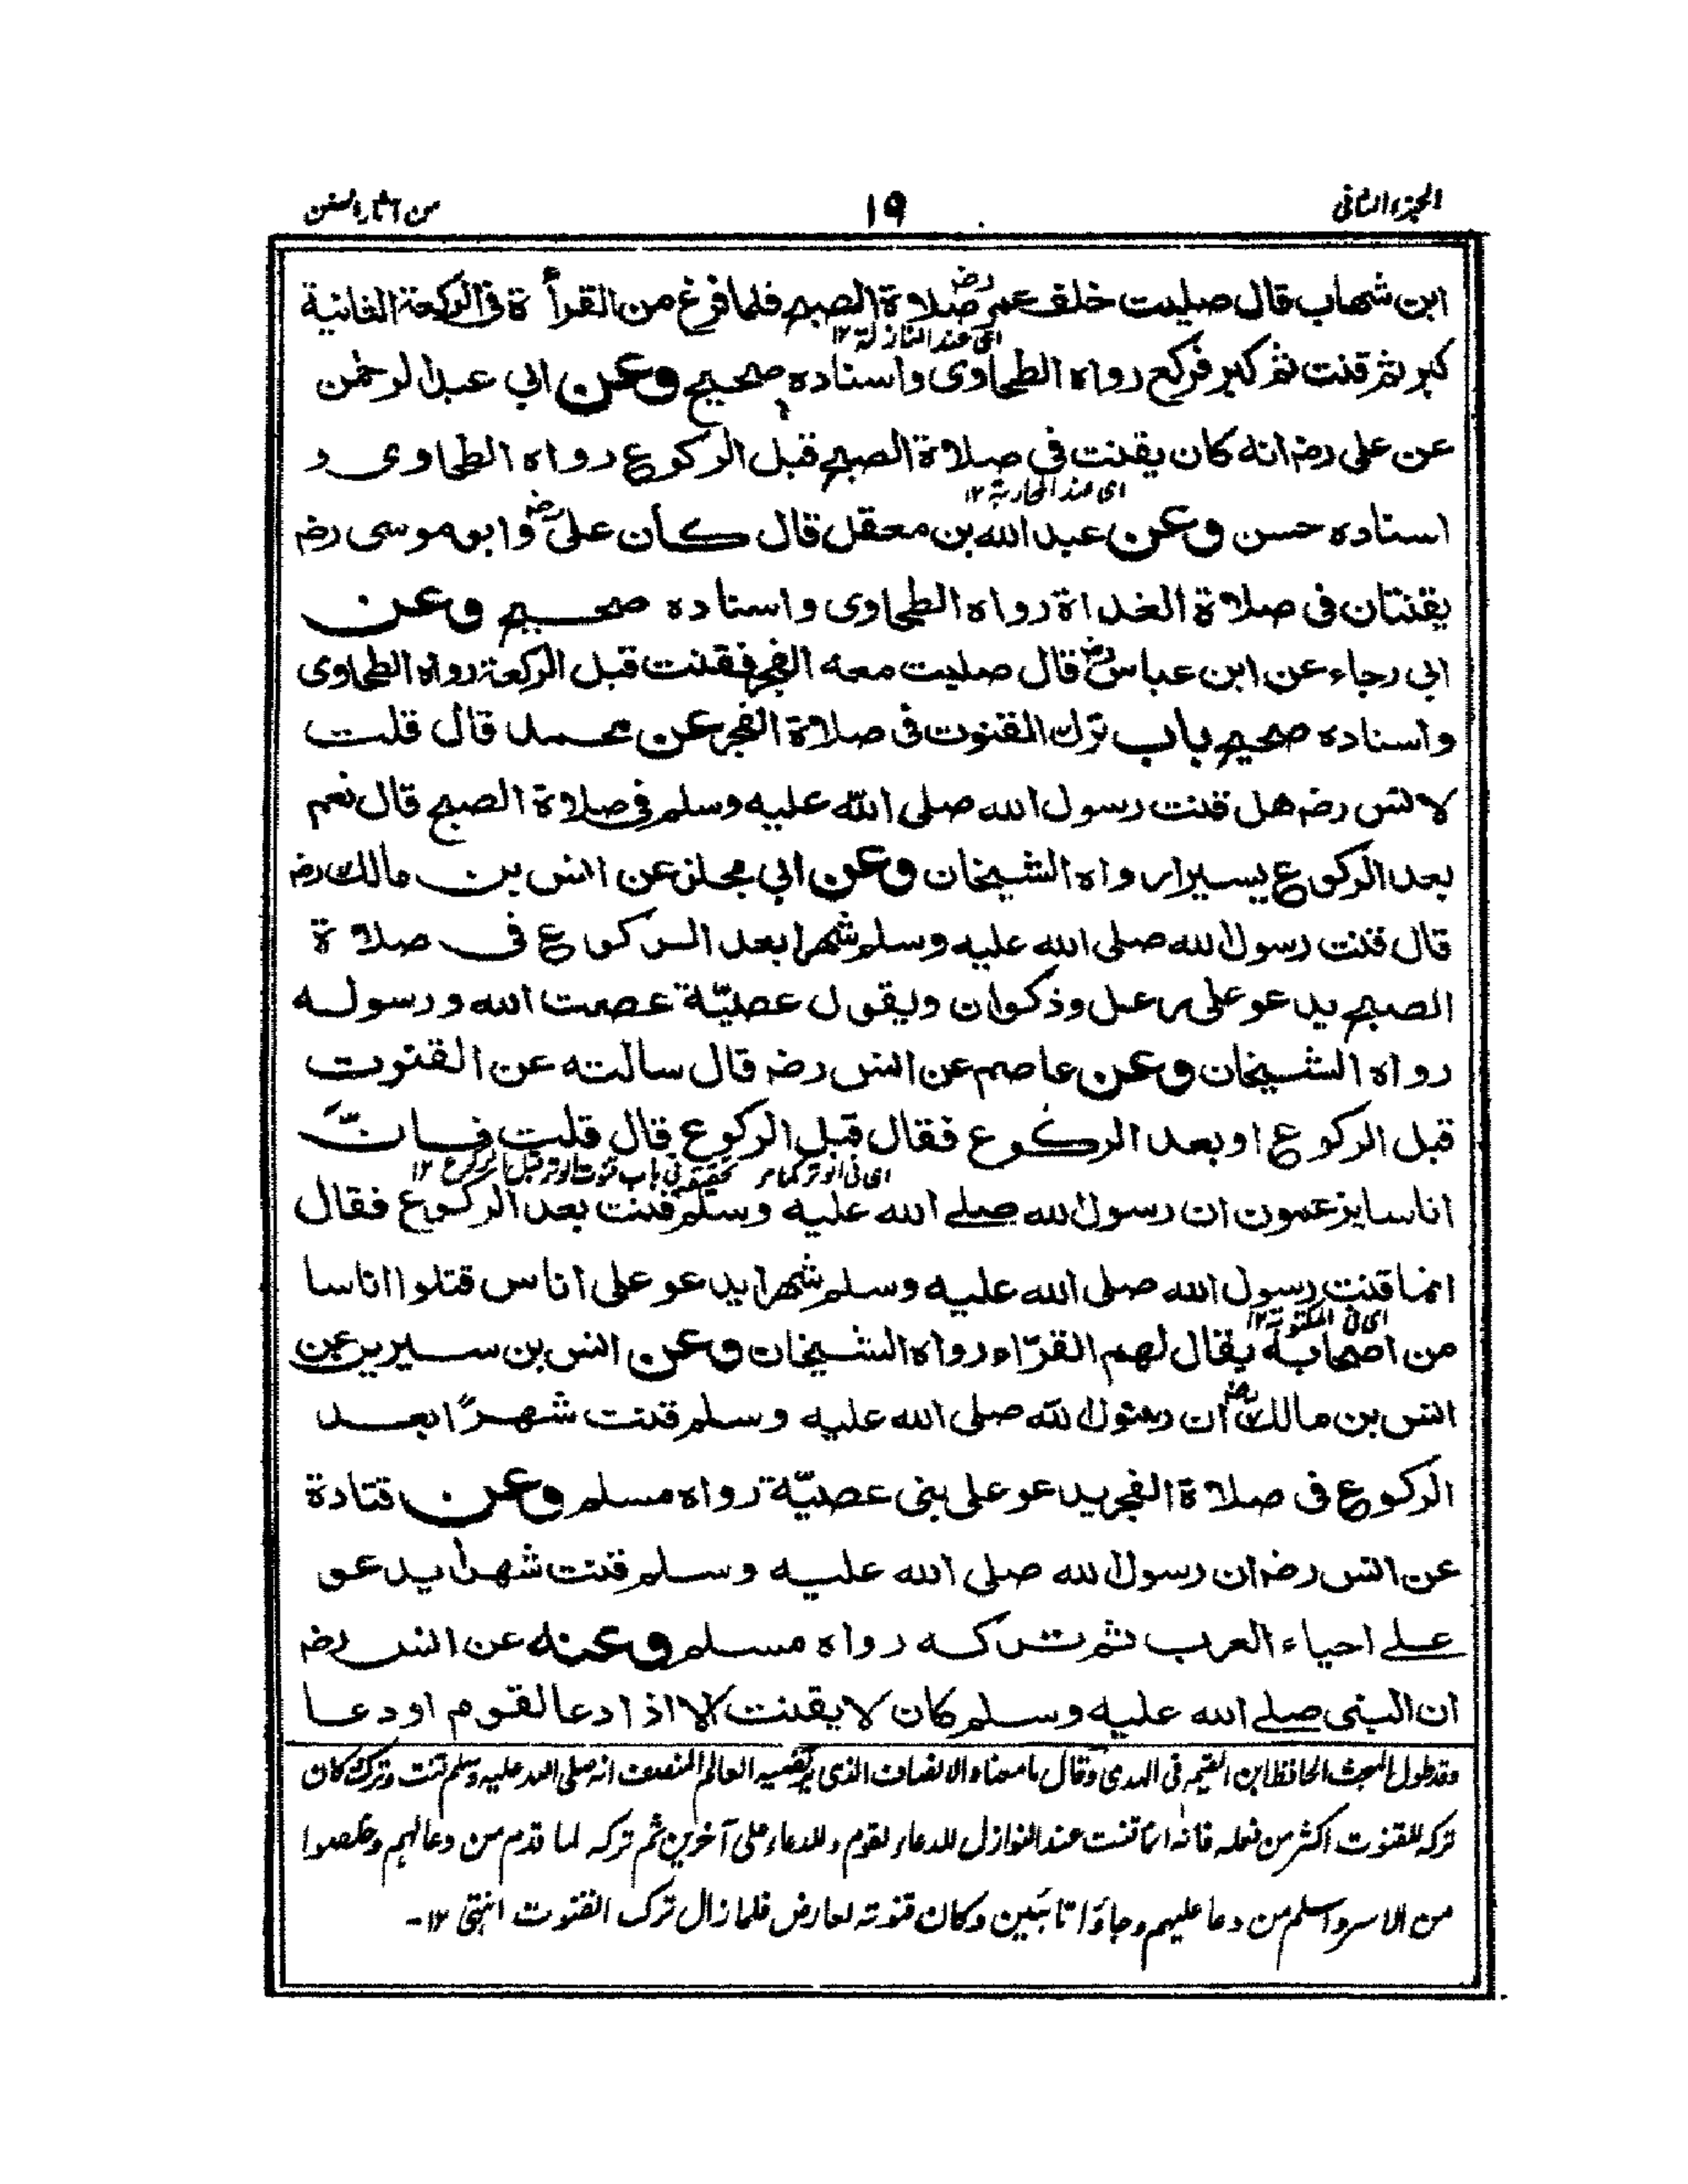 الجزء الثانی
١٩
من آثار السنن
ابن شهاب قال صليت خلف عمر رضـ صلاة الصبح فلما فرغ من القرأة فى الركعة الثانية
اى عند النازلة ١٢
كبر ثم قنت ثم كبر فركع رواه الطحاوى واسناده صحيح وعن ابي عبد الرحمٰن
عن على رضـ انه كان يقنت في صلاة الصبح قبل الركوع رواه الطحاوى و
اى عند المحاربة ١٢
اسناده حسن وعن عبد الله بن معقل قال كان على رضـ وابو موسى رضـ
يقنتان فى صلاة الغداة رواه الطحاوى واسناده صحيح وعن
ابي رجاء عن ابن عباس رضـ قال صليت معه الفجر فقنت قبل الركعة رواه الطحاوى
واسناده صحيح باب ترك القنوت فى صلاة الفجر عن محمد قال قلت
لانس رضـ هل قنت رسول الله صلى الله عليه وسلم فى صلاة الصبح قال نعم
بعد الركوع يسيرا رواه الشيخان وعن ابي مجلز عن انس بن مالك رضـ
قال قنت رسول الله صلى الله عليه وسلم شهرا بعد الركوع فى صلاة
الصبح يدعو على رعل وذكوان ويقول عصيّة عصت الله ورسوله
رواه الشيخان وعن عاصم عن انس رضـ قال سالته عن القنوت
قبل الركوع او بعد الركوع فقال قبل الركوع قال قلت فانّ
اى فى الوتر كما مر تحقيقه فى باب قنوت الوتر قبل الركوع ١٢
اناسا يزعمون ان رسول الله صلے الله عليه وسلم قنت بعد الركوع فقال
انما قنت رسول الله صلى الله عليه وسلم شهرا يدعو على اناس قتلوا اناسا
اى فى المكتوبة ١٢
من اصحابه يقال لهم القرّاء رواه الشيخان وعن انس بن سيرين عن
انس بن مالك رضـ ان رسول الله صلى الله عليه وسلم قنت شهرًا بعد
الركوع فى صلاة الفجر يدعو على بنى عصيّة رواه مسلم وعن قتادة
عن انس رضـ ان رسول الله صلى الله عليه وسلم قنت شهرا يدعو
علے احياء العرب ثم تركه رواه مسلم وعنه عن انس رضـ
ان النبى صلے الله عليه وسلم كان لا يقنت الا اذا دعا لقوم او دعا
وقد طول البحث الحافظ ابن القيم فى الهدى وقال ما معناه الانصاف الذى يرتضيه العالم المنصف انه صلى الله عليه وسلم قنت وترك كان
تركه للقنوت اكثر من فعله فانه انما قنت عند النوازل للدعاء لقوم وللدعاء على آخرين ثم تركه لما قدم من دعا لهم وخلصوا
من الاسر واسلم من دعا عليهم وجاؤا تائبين وكان قنوته لعارض فلما زال ترك القنوت انتهى ١٢-